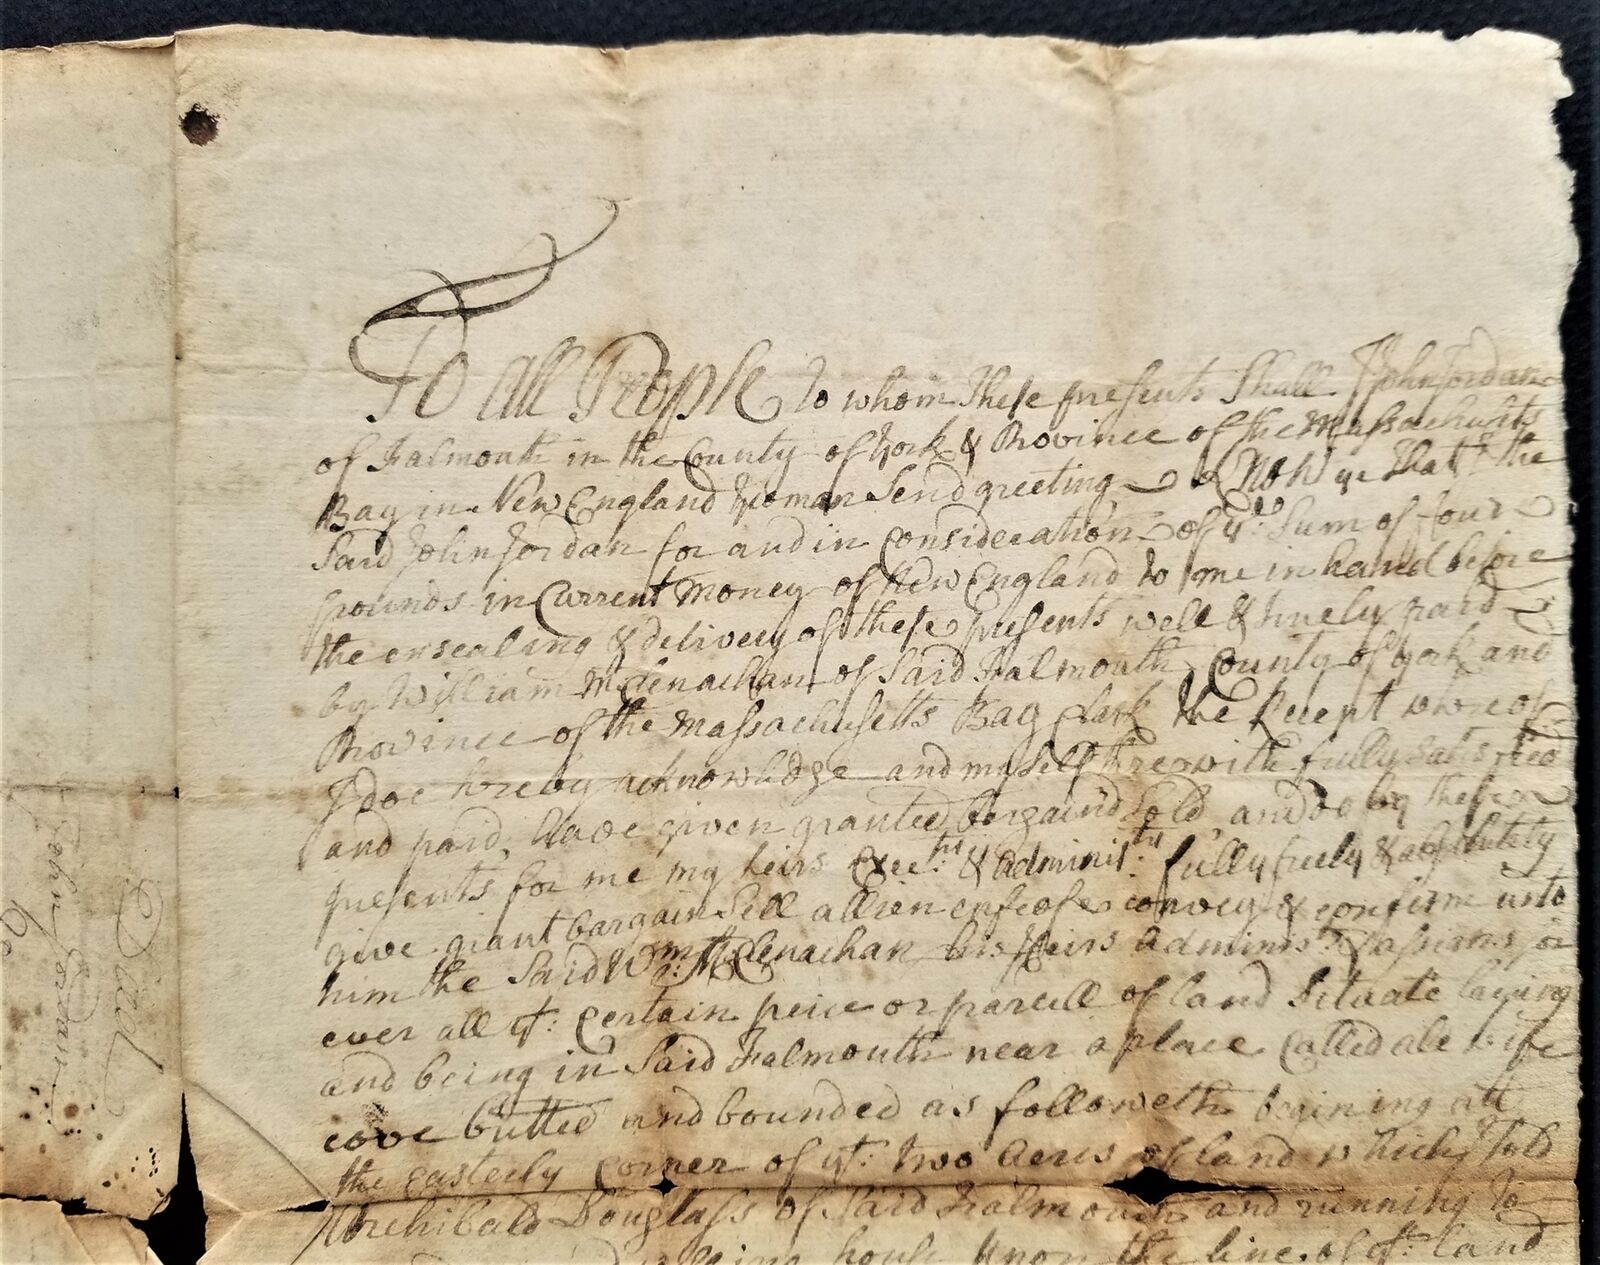 To All People to whom these presents Shall I John Jordan
of Falmouth in the County of York & Province of the Massachusits
Bay in New England Yeoman Send greeting Now ye That I the
Said John Jordan for and in Consideration of ye Sum of four
pounds in Current Money of New England to me in hand before
the ensealing & delivery of these presents well & truely paid
by William McClenachan of Said Falmouth County of York and
Province of the Massachusetts Bay Clark the Receipt whereof
I doe hereby acknowledge and my self therewith fully Satisfied
and paid, Have given granted bargaind Sold, and do by these
presents for me my heirs Exectrs & Administrs fully freely & absolutely
give grant bargain Sell allien enfeofe convey & confirm unto
him the Said Wm McClenachan his Heirs Adminrs & assigns for
ever all yt: Certain peice or parcell of land Situate laying
and being in Said Falmouth near a place Called ale wife
cove Butted and bounded as followeth begining att
the easterly corner of yt: two Acres of land which I sold
Archibald Douglass of Said Falmouth and running to
house upon the line of yt: land
Deed
John Jordan